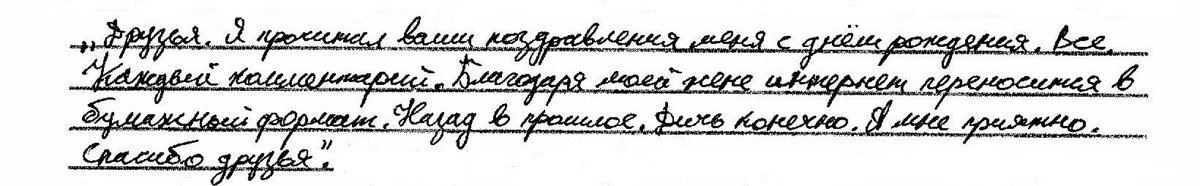 „Друзья. Я прочитал ваши поздравления меня с днём рождения. Все.
Каждый комментарий. Благодаря моей жене интернет переносится в
бумажный формат. Назад в прошлое. Дичь конечно. А мне приятно.
Спасибо друзья".